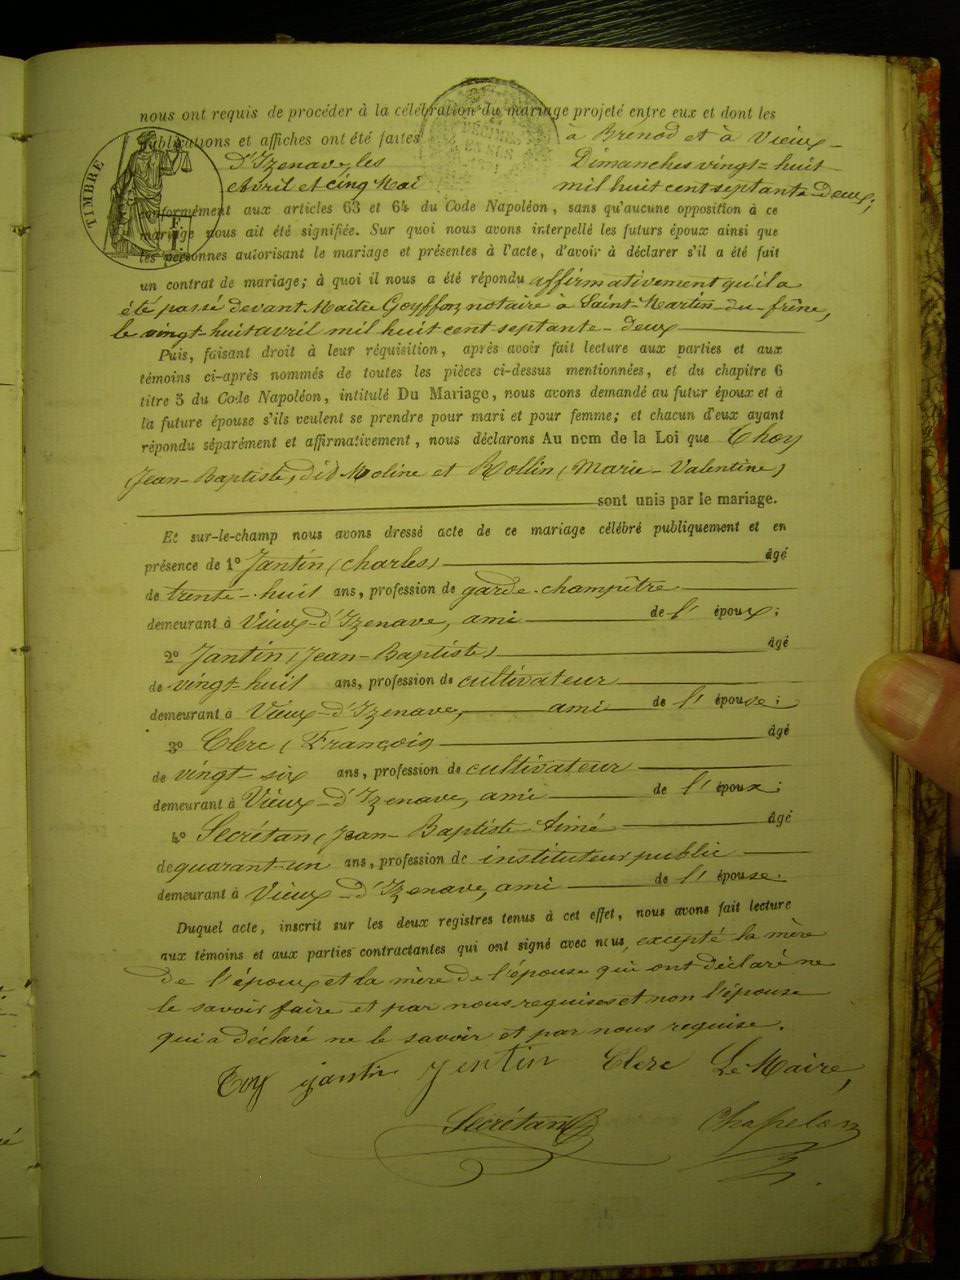 nous ont requis de procéder à la célébration du mariage projeté entre eux et dont les
publications et affiches ont été faites à Brénod et à Vieux-
d'Izenave, les Dimanches vingt-huit
Avril et cinq Mai mil huit cent septante-Deux,
conformément aux articles 63 et 64 du Code Napoléon, sans qu'aucune opposition à ce
mariage nous ait été signifiée. Sur quoi nous avons interpellé les futurs époux ainsi que
les personnes autorisant le mariage et présentes à l'acte, d'avoir à déclarer s'il a été fait
un contrat de mariage; à quoi il nous a été répondu affirmativement qu'il a
été passé devant Maître Goyffon, notaire à Saint-Martin-du-frêne,
le vingt-huit avril mil huit cent septante-deux
Puis, faisant droit à leur réquisition, après avoir fait lecture aux parties et aux
témoins ci-après nommés de toutes les pièces ci-dessus mentionnées, et du chapitre 6
titre 5 du Code Napoléon, intitulé Du Mariage, nous avons demandé au futur époux et à
la future épouse s'ils veulent se prendre pour mari et pour femme; et chacun d'eux ayant
répondu séparément et affirmativement, nous déclarons Au nom de la Loi que Thoy
(Jean-Baptiste) dit Moline et Rollin (Marie-Valentine)
sont unis par le mariage.
Et sur-le-champ nous avons dressé acte de ce mariage célébré publiquement et en
présence de 1° Jantin (Charles) âgé
de trente-huit ans, profession de garde-champêtre
demeurant à Vieux-d'Izenave, ami de l'époux;
2° Jantin (Jean-Baptiste) âgé
de vingt-huit ans, profession de cultivateur
demeurant à Vieux-d'Izenave, ami de l'épouse;
3° Clerc (François) âgé
de vingt-six ans, profession de cultivateur
demeurant à Vieux-d'Izenave, ami de l'époux;
4° Secrétan (Jean-Baptiste-Aimé âgé
de quarant-un ans, profession de instituteur public
demeurant à Vieux-d'Izenave, ami de l'épouse.
Duquel acte, inscrit sur les deux registres tenus à cet effet, nous avons fait lecture
aux témoins et aux parties contractantes qui ont signé avec nous, excepté la mère
de l'époux et la mère de l'épouse qui ont déclaré ne
le savoir faire et par nous requises et non l'épouse
qui a déclaré ne le savoir et par nous requise.
Toy jantin Jentin Clerc Le Maire,
Secrétan Chapelan
TIMBRE